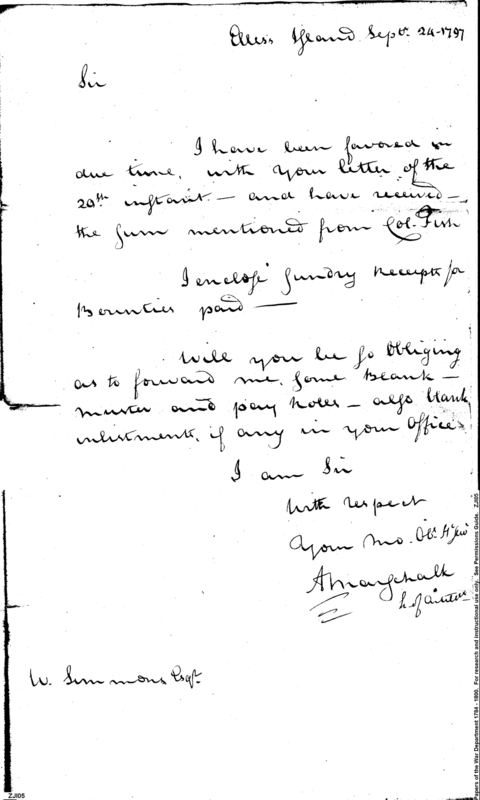 Ellis's Island Septr. 24-1797
Sir
I have been favored in
due time, with your letter of the
20th instant. — and have received —
the sum mentioned from Col. Fish
I enclose sundry Receipts for
Bounties paid —
Will you be so Obliging
as to forward me, some Blank —
muster and pay Roles — also blank
inlistments, if any in your Office
I am Sir
With respect
Your Mo. Obt. H'
A Marschalk
W. Simmons Esqr.
ZJI05
Papers of the War Department 1784 - 1800. For research and instructional use only. See Permissions Guide. ZJI05